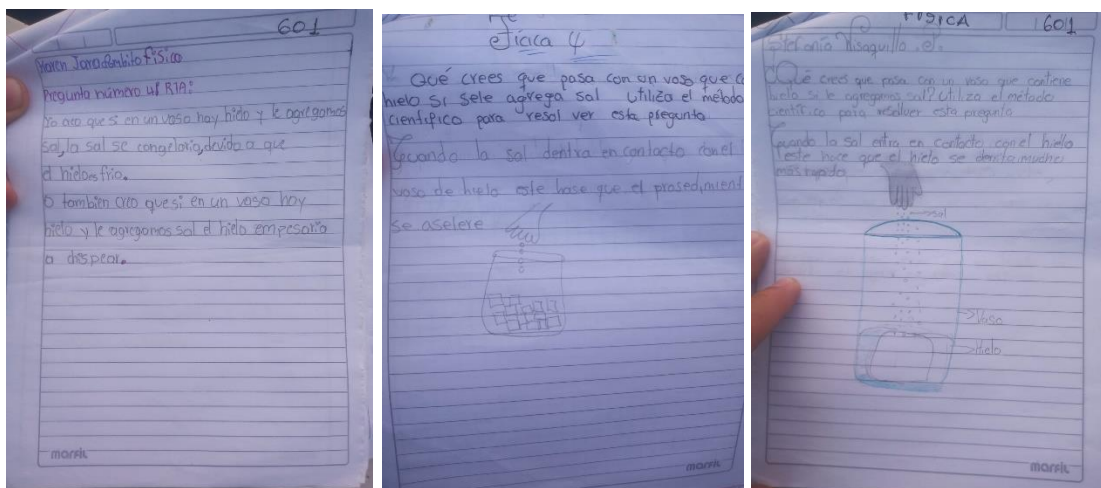 601
Karen Jara ámbito físico
Pregunta número 4/ RTA:
Yo creo que si en un vaso hay hielo y le agregamos
sal, la sal se congelaria, devido a que
el hielo es frio.
o tambien creo que si en un vaso hay
hielo y le agregamos sal el hielo empesaria
a chispear.
marfil
Física 4
Qué crees que pasa con un vaso que c
hielo si sele agrega sal Utiliza el método
cientifico para resol ver esta pregunta
Cuando la sal dentra en contacto con el
vaso de hielo este hase que el prosedimient
se aselere
marfil
FISICA 601
Stefania Visaguillo
Qué crees que pasa con un vaso que contiene
hielo si le agregamos sal? Utiliza el método
cientifico para resolver esta pregunta
Cuando la sal entra en contacto con el hielo
este hace que el hielo se derrita mucho
mas rapido
sal
Vaso
Hielo
marfil